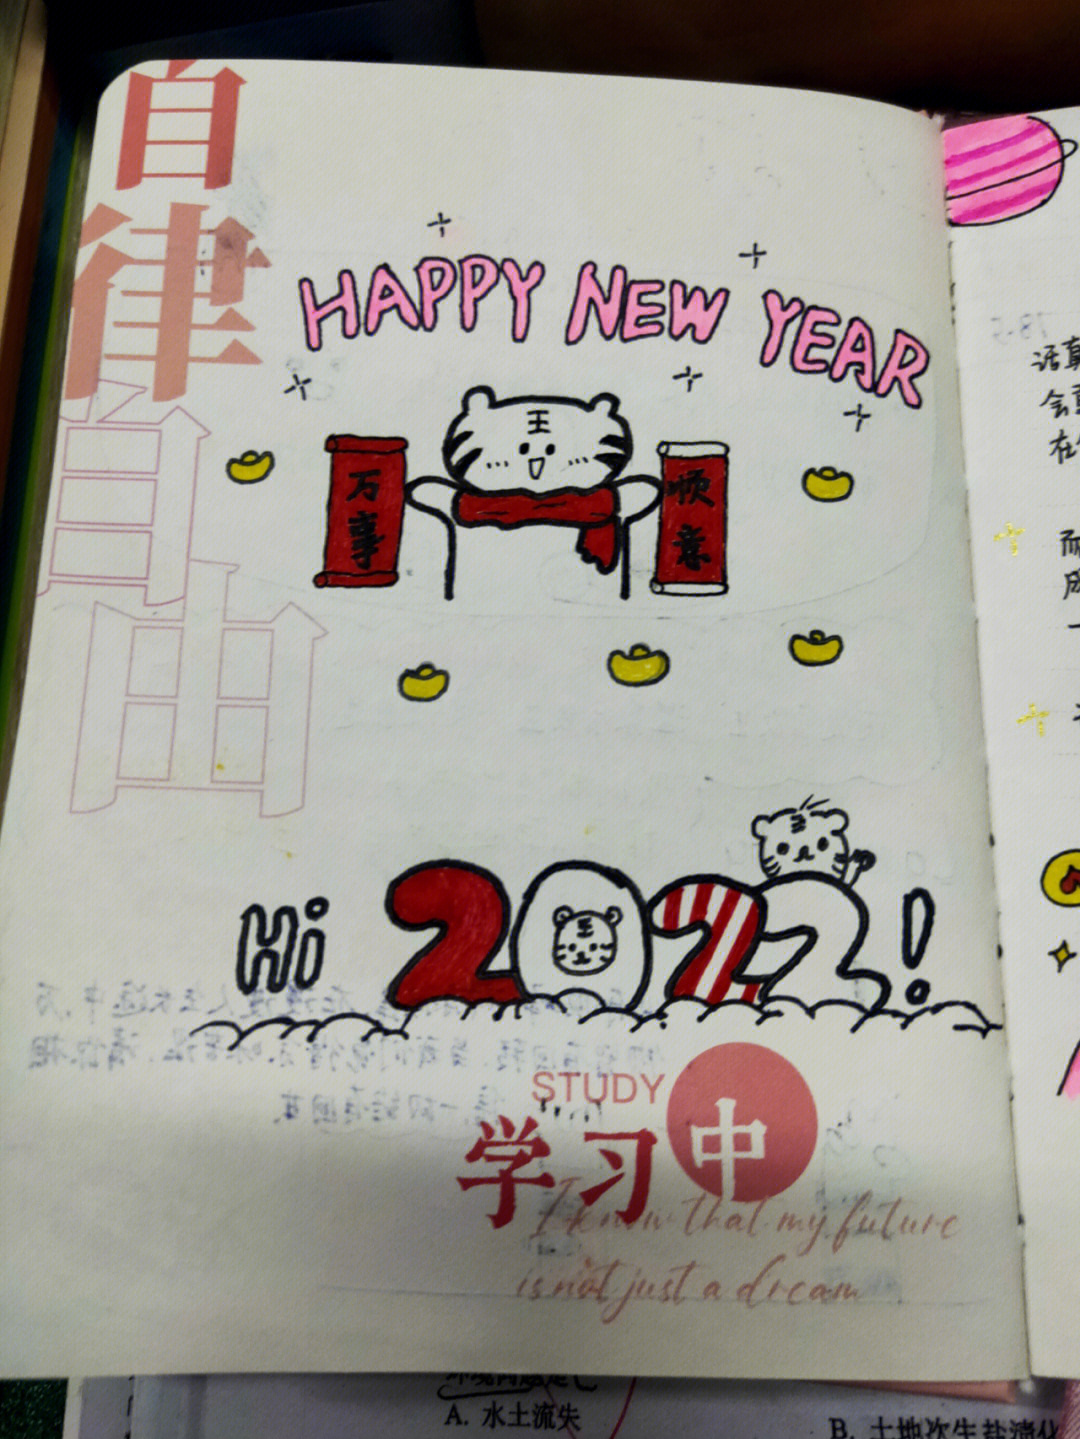 自律
自由
HAPPY NEW YEAR
王
万事
顺意
Hi 2022!
STUDY
学习中
I know that my future
is not just a dream
话
会
在
A. 水土流失
B. 土地次生盐渍化